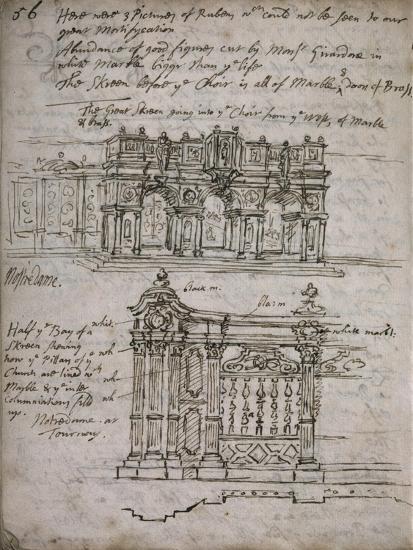 56
Here were 3 Pictures of Ruben wch could not be seen to our
great Mortification
Abundance of good figures cut by Monsr Girardone in
white Marble bigger than ye life
The Skreen before ye Choir is all of Marble & Doors of Brass
The Great Skreen going into ye Choir from ye West, of Marble
& brass.
Nostredame.
black m.
bla: m
white marbl.
Half ye Bay of a
Skreen shewing
how ye Pillars of ye
Church are lined wth
Marble & ye inter
columniations filld
up.
Nostredame at
Tournay
whit
wh
wh
wh